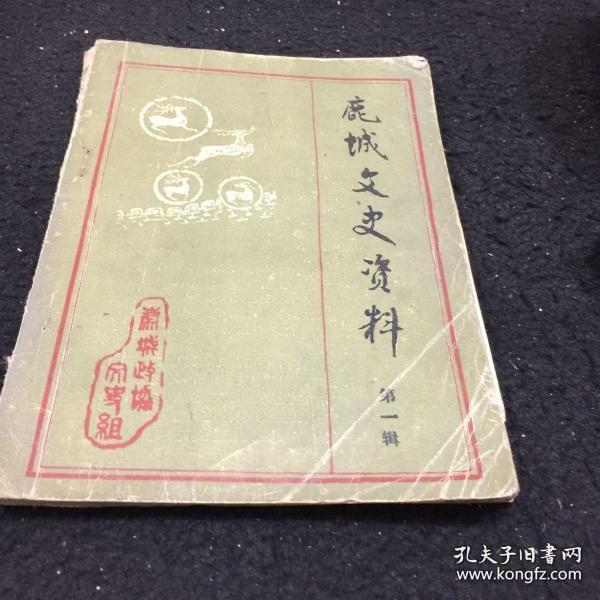 鹿城文史资料
第一辑
政协
文史组
孔夫子旧书网
www.kongfz.com